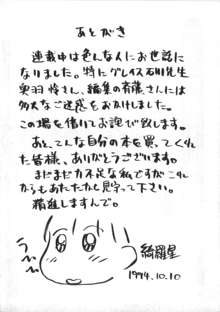 あとがき
連載中は色んな人にお世話に
なりました。特にグレイス石川先生
奥羽怜さん、編集の斉藤さんには
多大なご迷惑をおかけしました。
この場を借りてお詫び致します。
あと、こんな自分の本を買ってくれ
た皆様、ありがとうございます。
まだまだ力不足な私ですがこれ
からもあたたかく見守って下さい。
精進しますんで。
う〜
綺羅星
1994.10.10